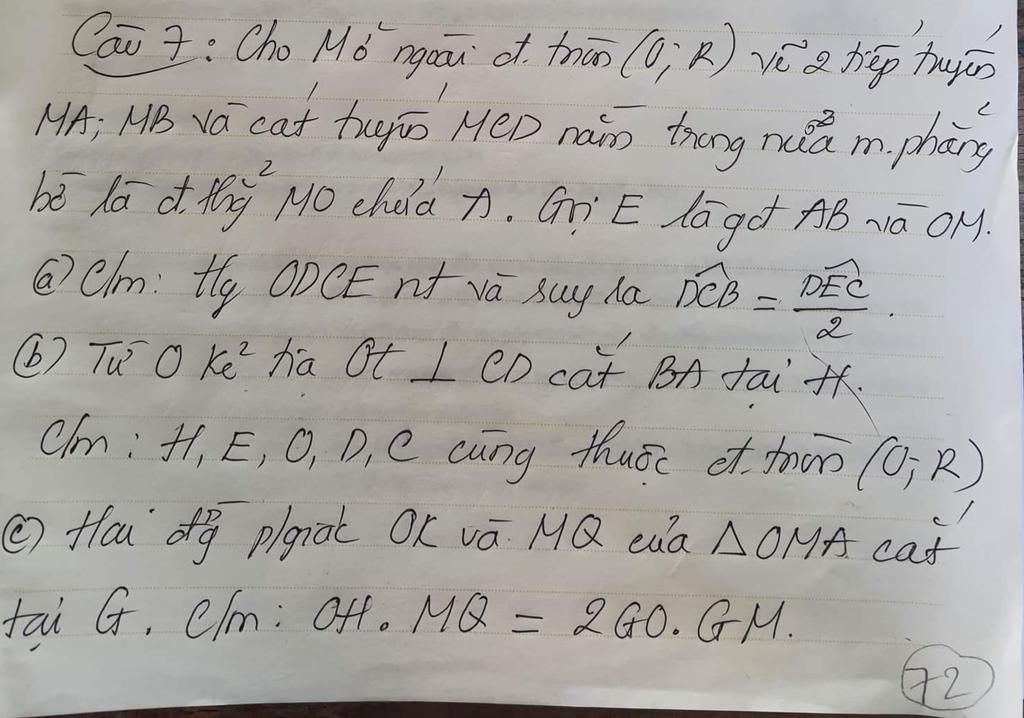 Câu 7: Cho M ở ngoài đ.tròn (O; R) vẽ 2 tiếp tuyến
MA; MB và cát tuyến MCD nằm trong nửa m.phẳng
bờ là đ.thg MO chứa A. Gọi E là gđ AB và OM.
a) C/m: Tg ODCE nt và suy ra DCB = DEC/2.
b) Từ O kẻ tia Ot ⊥ CD cắt BA tại H.
C/m: H, E, O, D, C cùng thuộc đ.tròn (O; R)
c) Hai đg p/giác OK và MQ của ΔOMA cắt
tại G. C/m: OH. MQ = 2GO. GM.
72